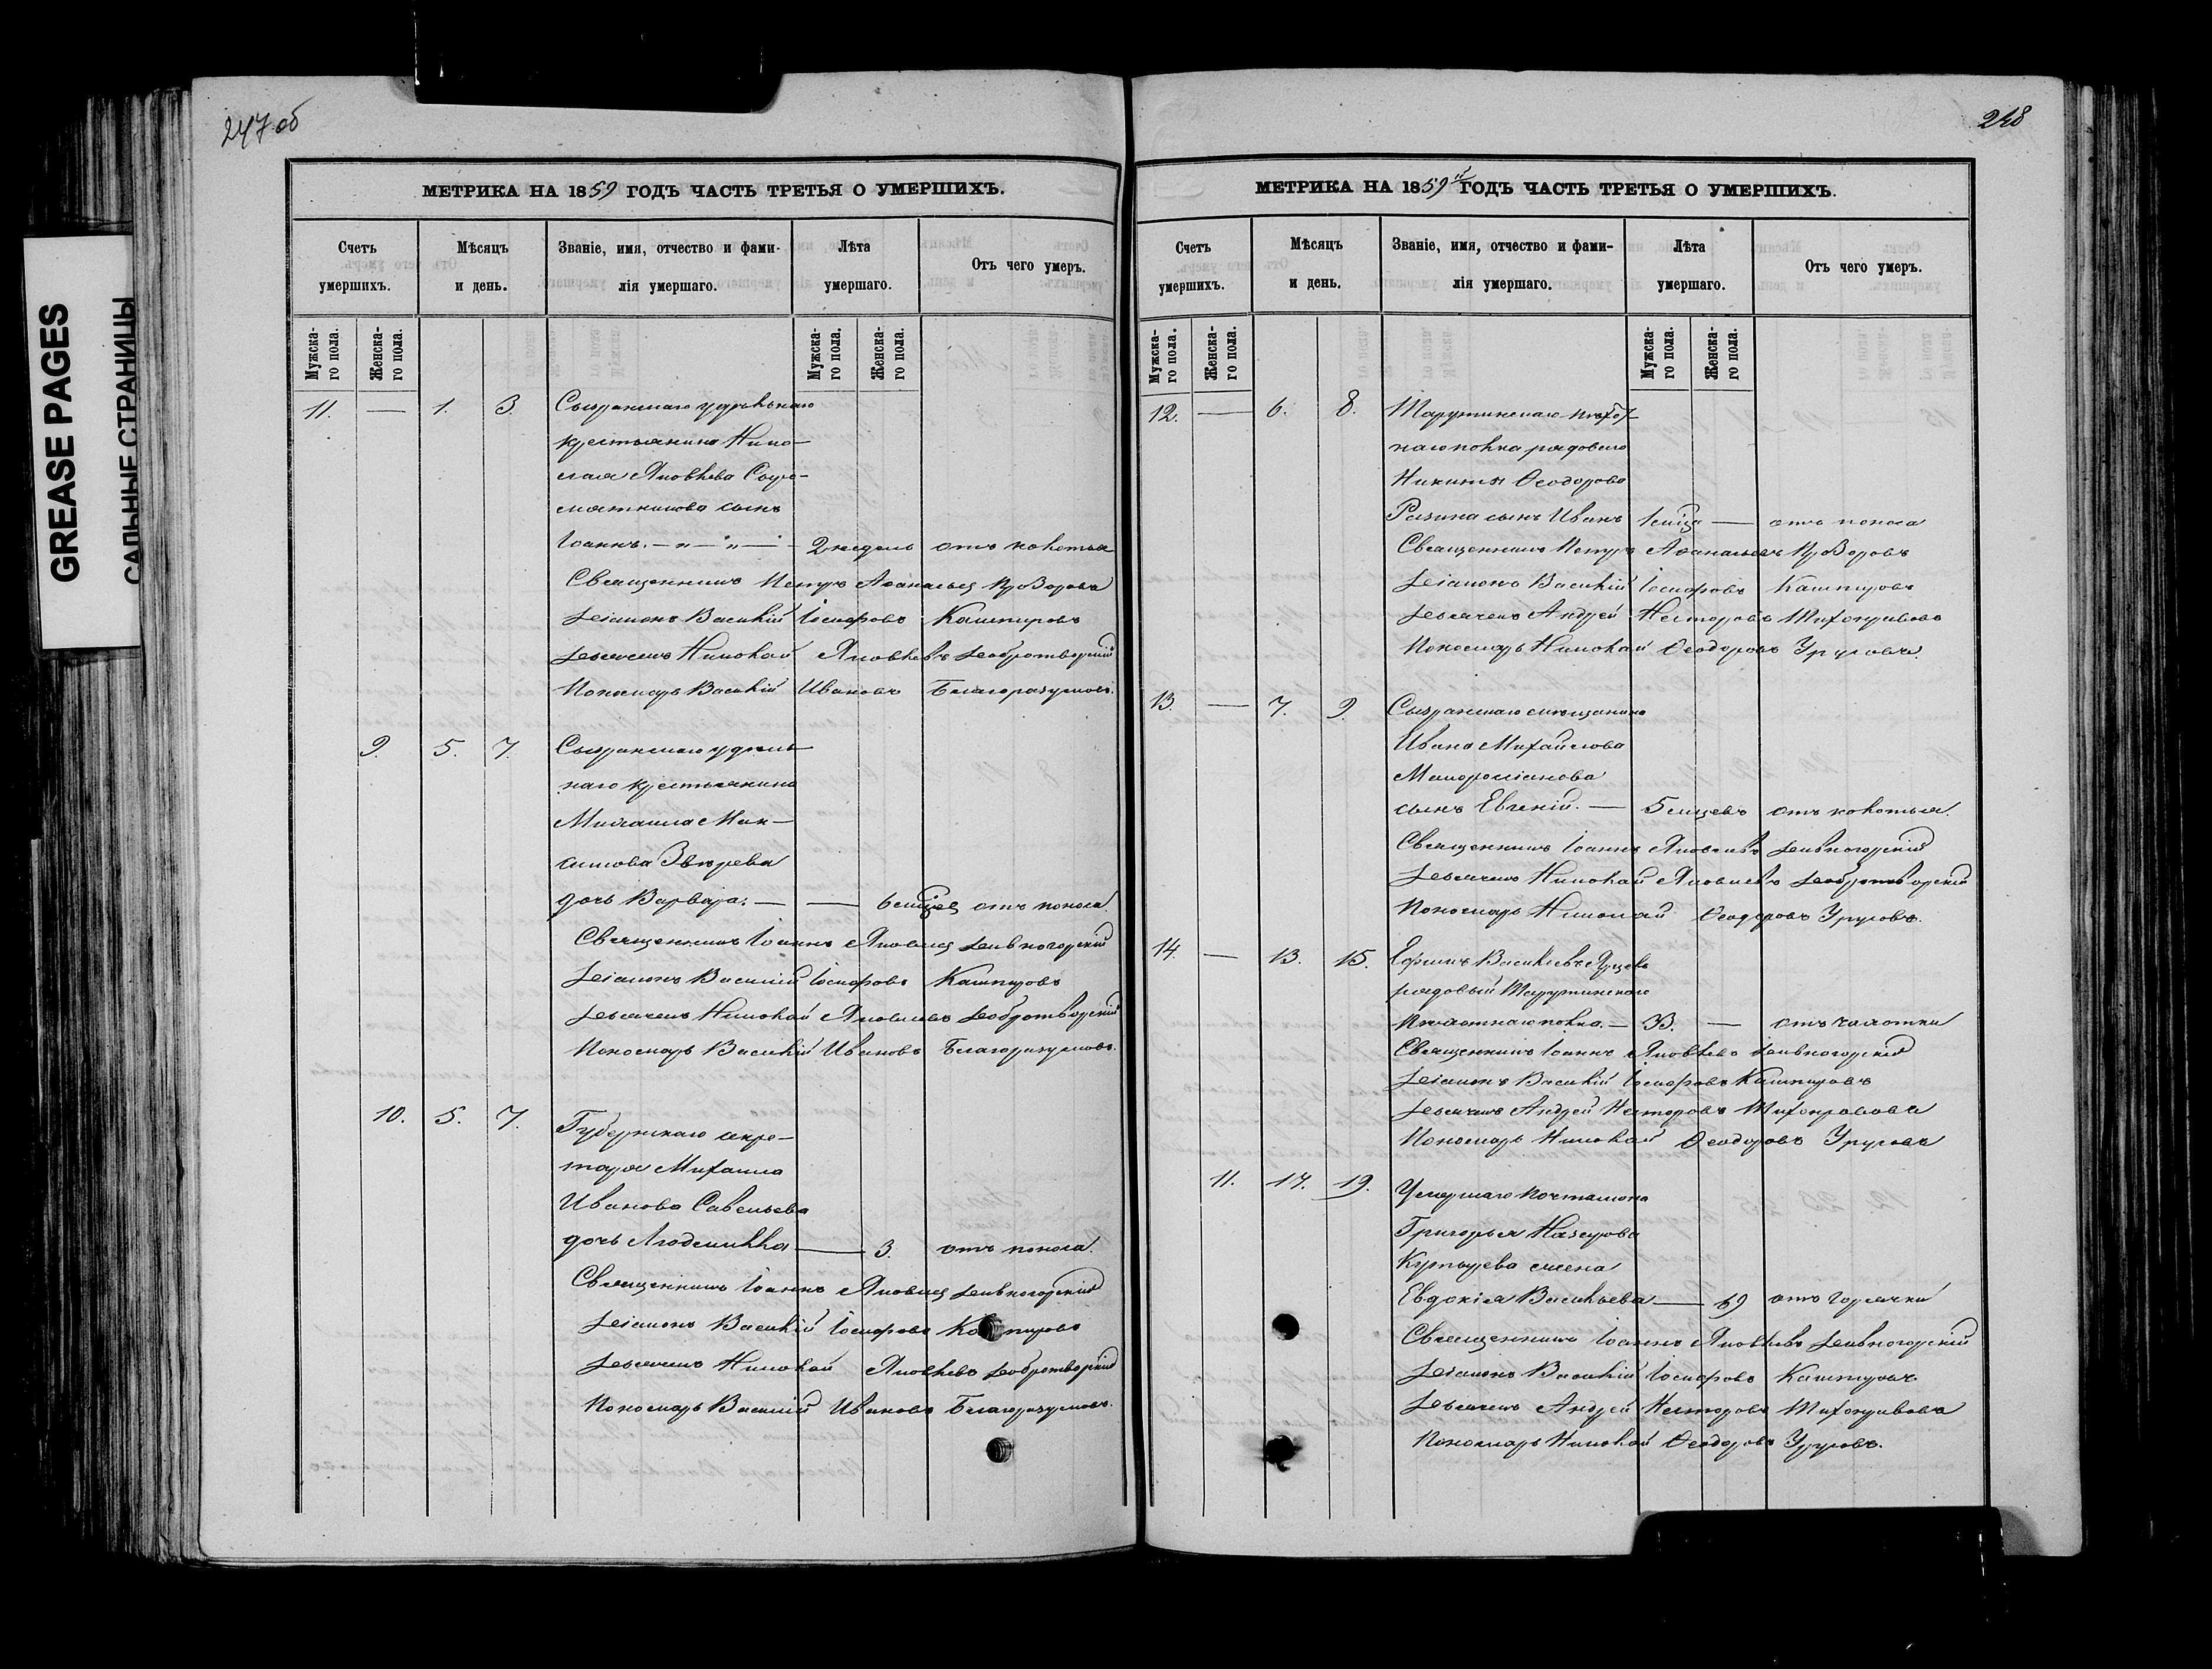 GREASE PAGES
САЛЬНЫЕ СТРАНИЦЫ
247 об
МЕТРИКА НА 1859 ГОДЪ ЧАСТЬ ТРЕТЬЯ О УМЕРШИХЪ.
Счетъ умершихъ.
Мѣсяцъ и день.
Званіе, имя, отчество и фами-
лія умершаго.
Лѣта умершаго.
Отъ чего умеръ.
Мужска-
го пола.
Женска-
го пола.
Мужска-
го пола.
Женска-
го пола.
11. — 1. 3. Сызранскаго удѣльнаго
крестьянина Нико-
лая Яковлева Сыро-
мятникова сынъ
Іоаннъ. — 2 недель отъ колотья
Священникъ Петръ Аѳанасьев Прозоровъ
Діаконъ Василій Іосифовъ Кашпировъ
Дьячекъ Николай Яковлевъ Добротворскій
Пономарь Василій Ивановъ Благоразумовъ.
9. 5. 7. Сызранскаго удѣль-
наго крестьянина
Михаила Мак-
симова Звѣрева
дочь Варвара. — — 6 мѣсяцев отъ поноса.
Священникъ Іоаннъ Яковлев Дивногорскій
Діаконъ Василий Іосифовъ Кашпировъ
Дьячекъ Николай Яковлевъ Добротворскій
Пономарь Василій Ивановъ Благоразумовъ.
10. 5. 7. Губернскаго секре-
таря Михаила
Иванова Савельева
дочь Людмилла — 3. отъ поноса.
Священникъ Іоаннъ Яковлев Дивногорскій
Діаконъ Василій Іосифовъ Кашпировъ
Дьячекъ Николай Яковлевъ Добротворскій
Пономарь Василий Ивановъ Благоразумовъ.
248
МЕТРИКА НА 1859й ГОДЪ ЧАСТЬ ТРЕТЬЯ О УМЕРШИХЪ.
Счетъ умершихъ.
Мѣсяцъ и день.
Званіе, имя, отчество и фами-
лія умершаго.
Лѣта умершаго.
Отъ чего умеръ.
Мужска-
го пола.
Женска-
го пола.
Мужска-
го пола.
Женска-
го пола.
12. — 6. 8. Тарутинскаго пѣхот-
наго полка рядоваго
Никиты Ѳеодорова
Разина сынъ Иванъ — отъ поноса
Священникъ Петръ Аѳанасьевъ Прозоровъ
Діаконъ Василій Іосифовъ Кашпировъ
Дьячекъ Андрей Несторовъ Тихонравовъ
Пономарь Николай Ѳеодоровъ Урусовъ.
13. — 7. 9. Сызранскаго мѣщанина
Ивана Михайлова
сынъ Евгеній. — 5 мцевъ отъ колотья.
Священникъ Іоаннъ Яковлевъ Дивногорскій
Дьячекъ Николай Яковлевъ Добротворскій
Пономарь Николай Ѳеодоровъ Урусовъ.
14. — 13. 15. Ефимъ Васильевъ
рядовый Тарутинскаго
пѣхотнаго полка. — 33. — отъ чахотки
Священникъ Іоаннъ Яковлевъ Дивногорскій
Діаконъ Василій Іосифовъ Кашпировъ
Дьячекъ Андрей Несторовъ Тихонравовъ
Пономарь Николай Ѳеодоровъ Урусовъ
11. 17. 19. Умершаго почталіона
Григорья Назарова
жена
Евдокія Васильева — 69 отъ горячки
Священникъ Іоаннъ Яковлевъ Дивногорскій
Діаконъ Василій Іосифовъ Кашпировъ.
Дьячекъ Андрей Несторовъ Тихонравовъ
Пономарь Николай Ѳеодоровъ Урусовъ.